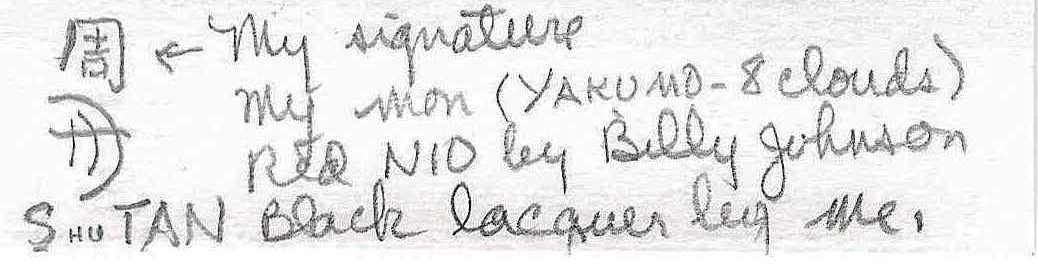 周 ← My signature
My mon (YAKUMO-8 clouds)
Red NIO by Billy Johnson
SHUTAN Black lacquer by me.